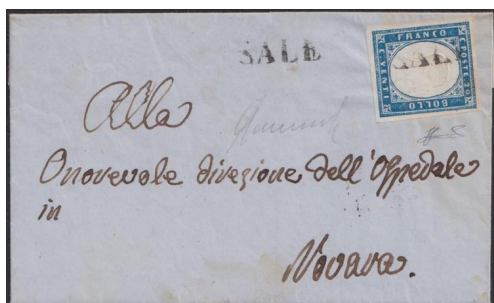 SALE
FRANCO
C. POSTE 20
C. VENTI
BOLLO
SALE
Alla
Onorevole divezione dell'Ospedale
in
Novara.